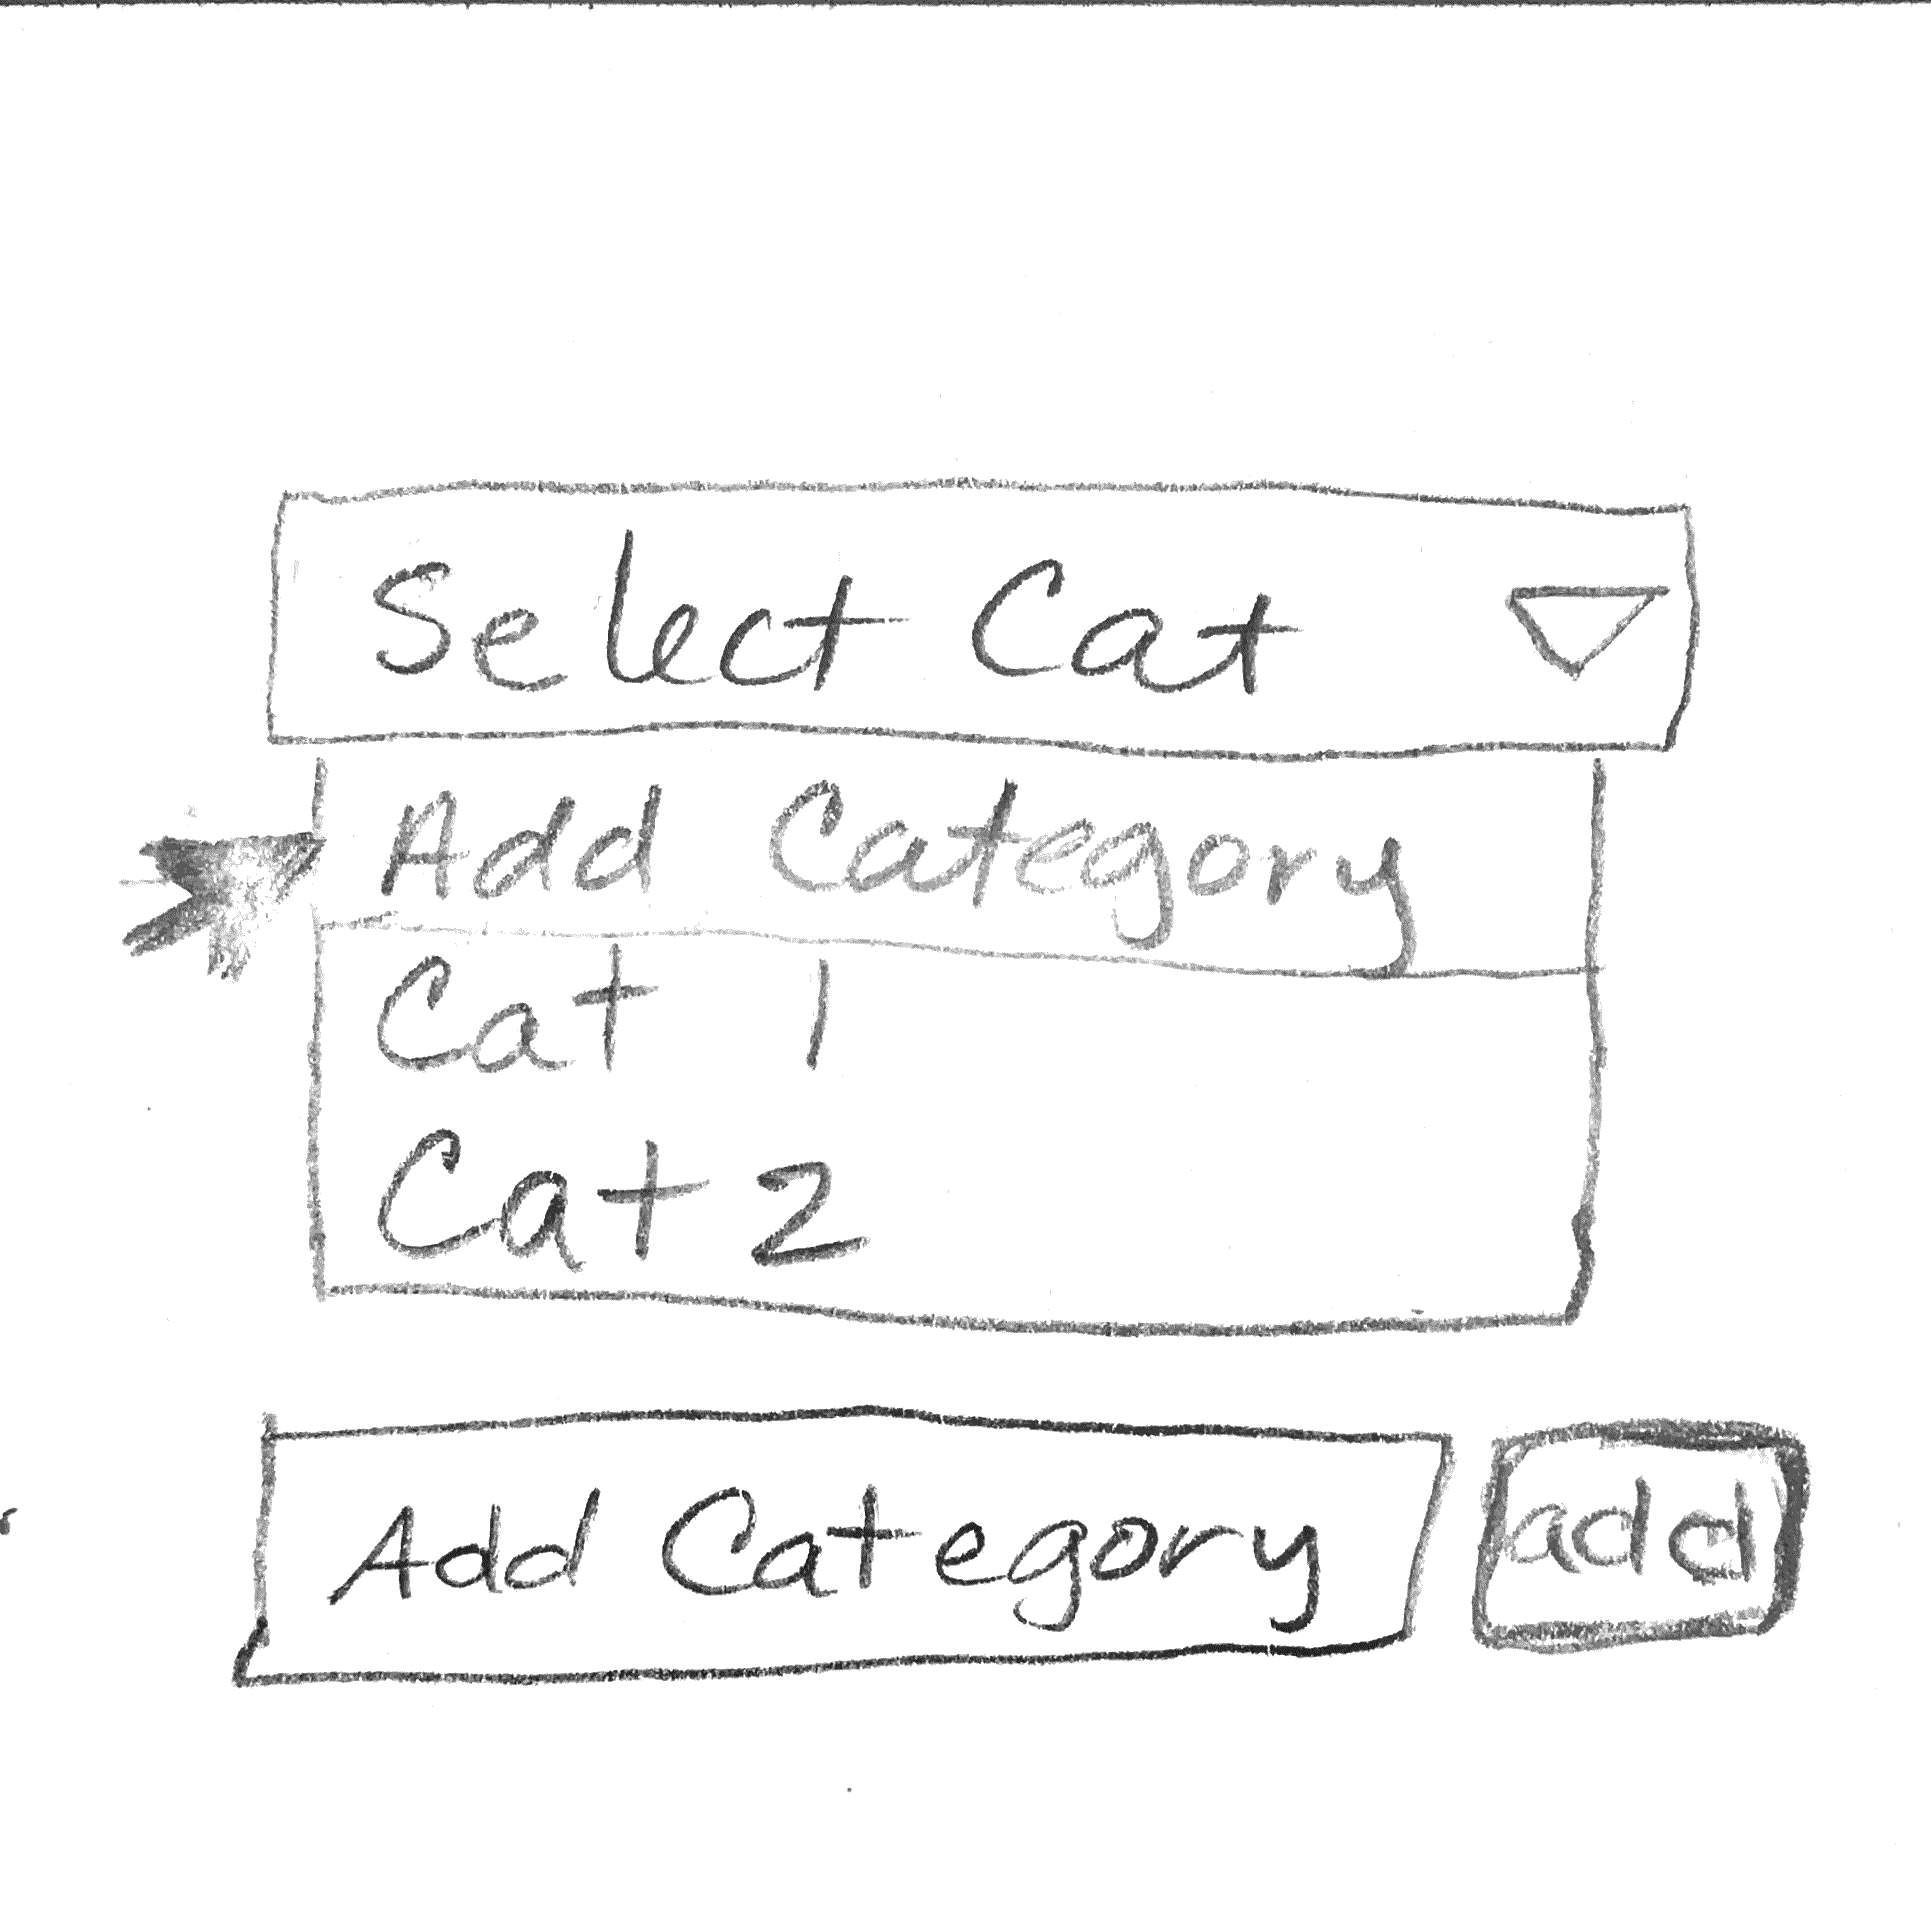 Select Cat
Add Category
Cat 1
Cat 2
Add Category
add